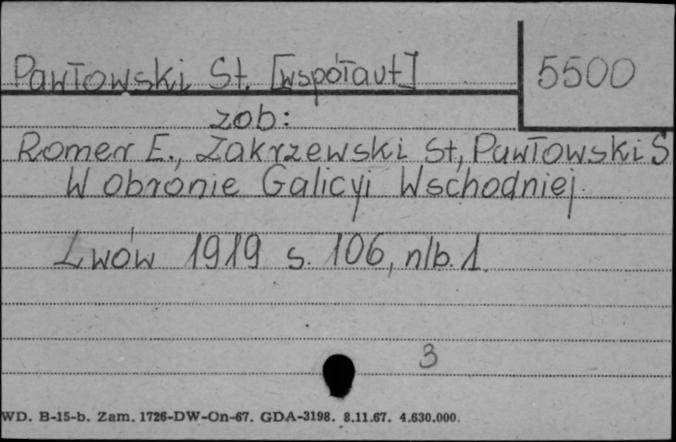 Pawłowski St. [współaut]
5500
zob:
Romer E., Zakrzewski St, Pawłowski S
W obronie Galicyi Wschodniej
Lwów 1919 s. 106, nlb. 1.
3
WD. B-15-b. Zam. 1726-DW-On-67. GDA-3198. 8.11.67. 4.630.000.